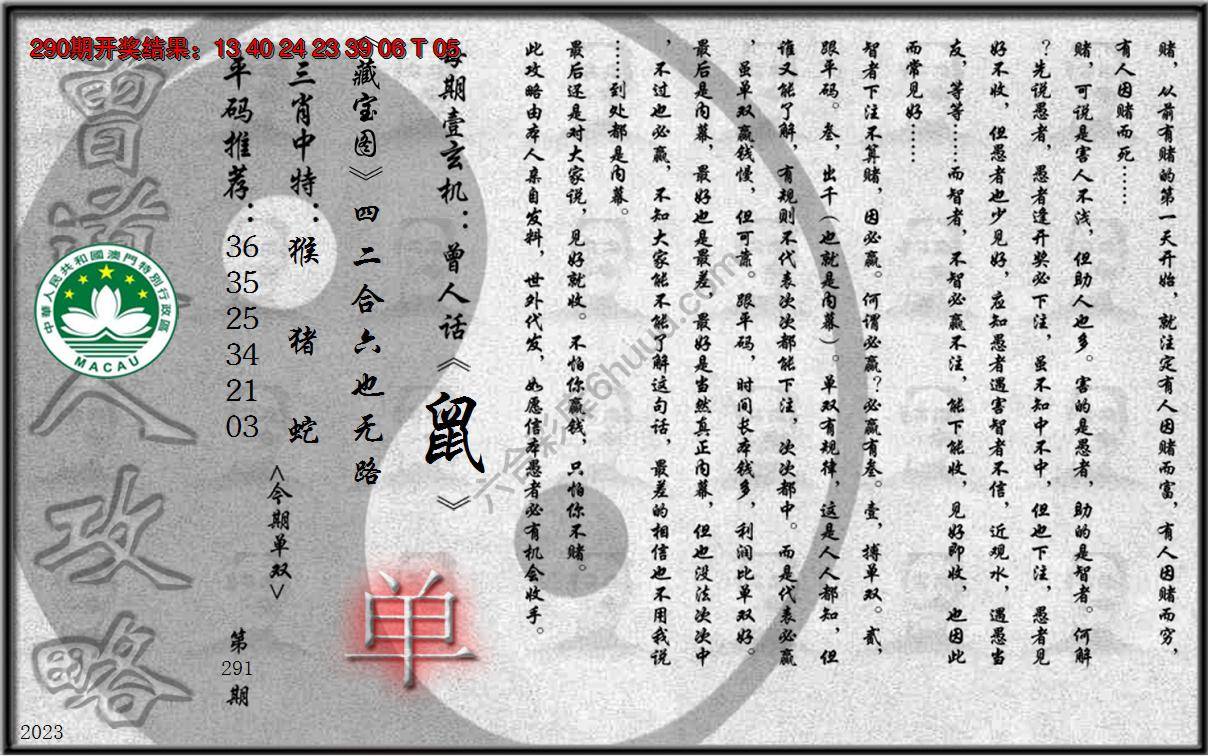 290期开奖结果：13 40 24 23 39 06 T 05
赌，从前有赌的第一天开始，就注定有人因赌而富，有人因赌而穷，
有人因赌而死……
赌，可说是害人不浅，但助人也多。害的是愚者，助的是智者。何解
？先说愚者，愚者逢开奖必下注，虽不知中不中，但也下注，愚者见
好不收，但愚者也少见好，应知愚者遇害智者不信，近观水，遇愚当
友，等等……而智者，不智必赢不注，能下能收，见好即收，也因此
而常见好……
智者下注不算赌，因必赢。何谓必赢？必赢有叁。壹，搏单双。贰，
跟平码。叁，出千（也就是内幕）。单双有规律，这是人人都知，但
谁又能了解，有规则不代表次次都能下注，次次都中。而是代表必赢
，虽单双赢钱慢，但可靠。跟平码，时间长本钱多，利润比单双好。
最后是内幕，最好也是最差，最好是当然真正内幕，但也没法次次中
，不过也必赢，不知大家能不能了解这句话，最差的相信也不用我说
……到处都是内幕。
最后还是对大家说，见好就收。不怕你赢钱，只怕你不赌。
此攻略由本人亲自发料，世外代发，如愿信本愚者必有机会收手。
每期壹玄机：曾人话《鼠》
《藏宝图》四二合六也无路
三肖中特：猴 猪 蛇
平码推荐：
36
35
25
34
21
03
<今期单双>
单
第
291
期
曾道人攻略
中華人民共和國澳門特別行政區
MACAU
六合彩库6huuu.com
2023